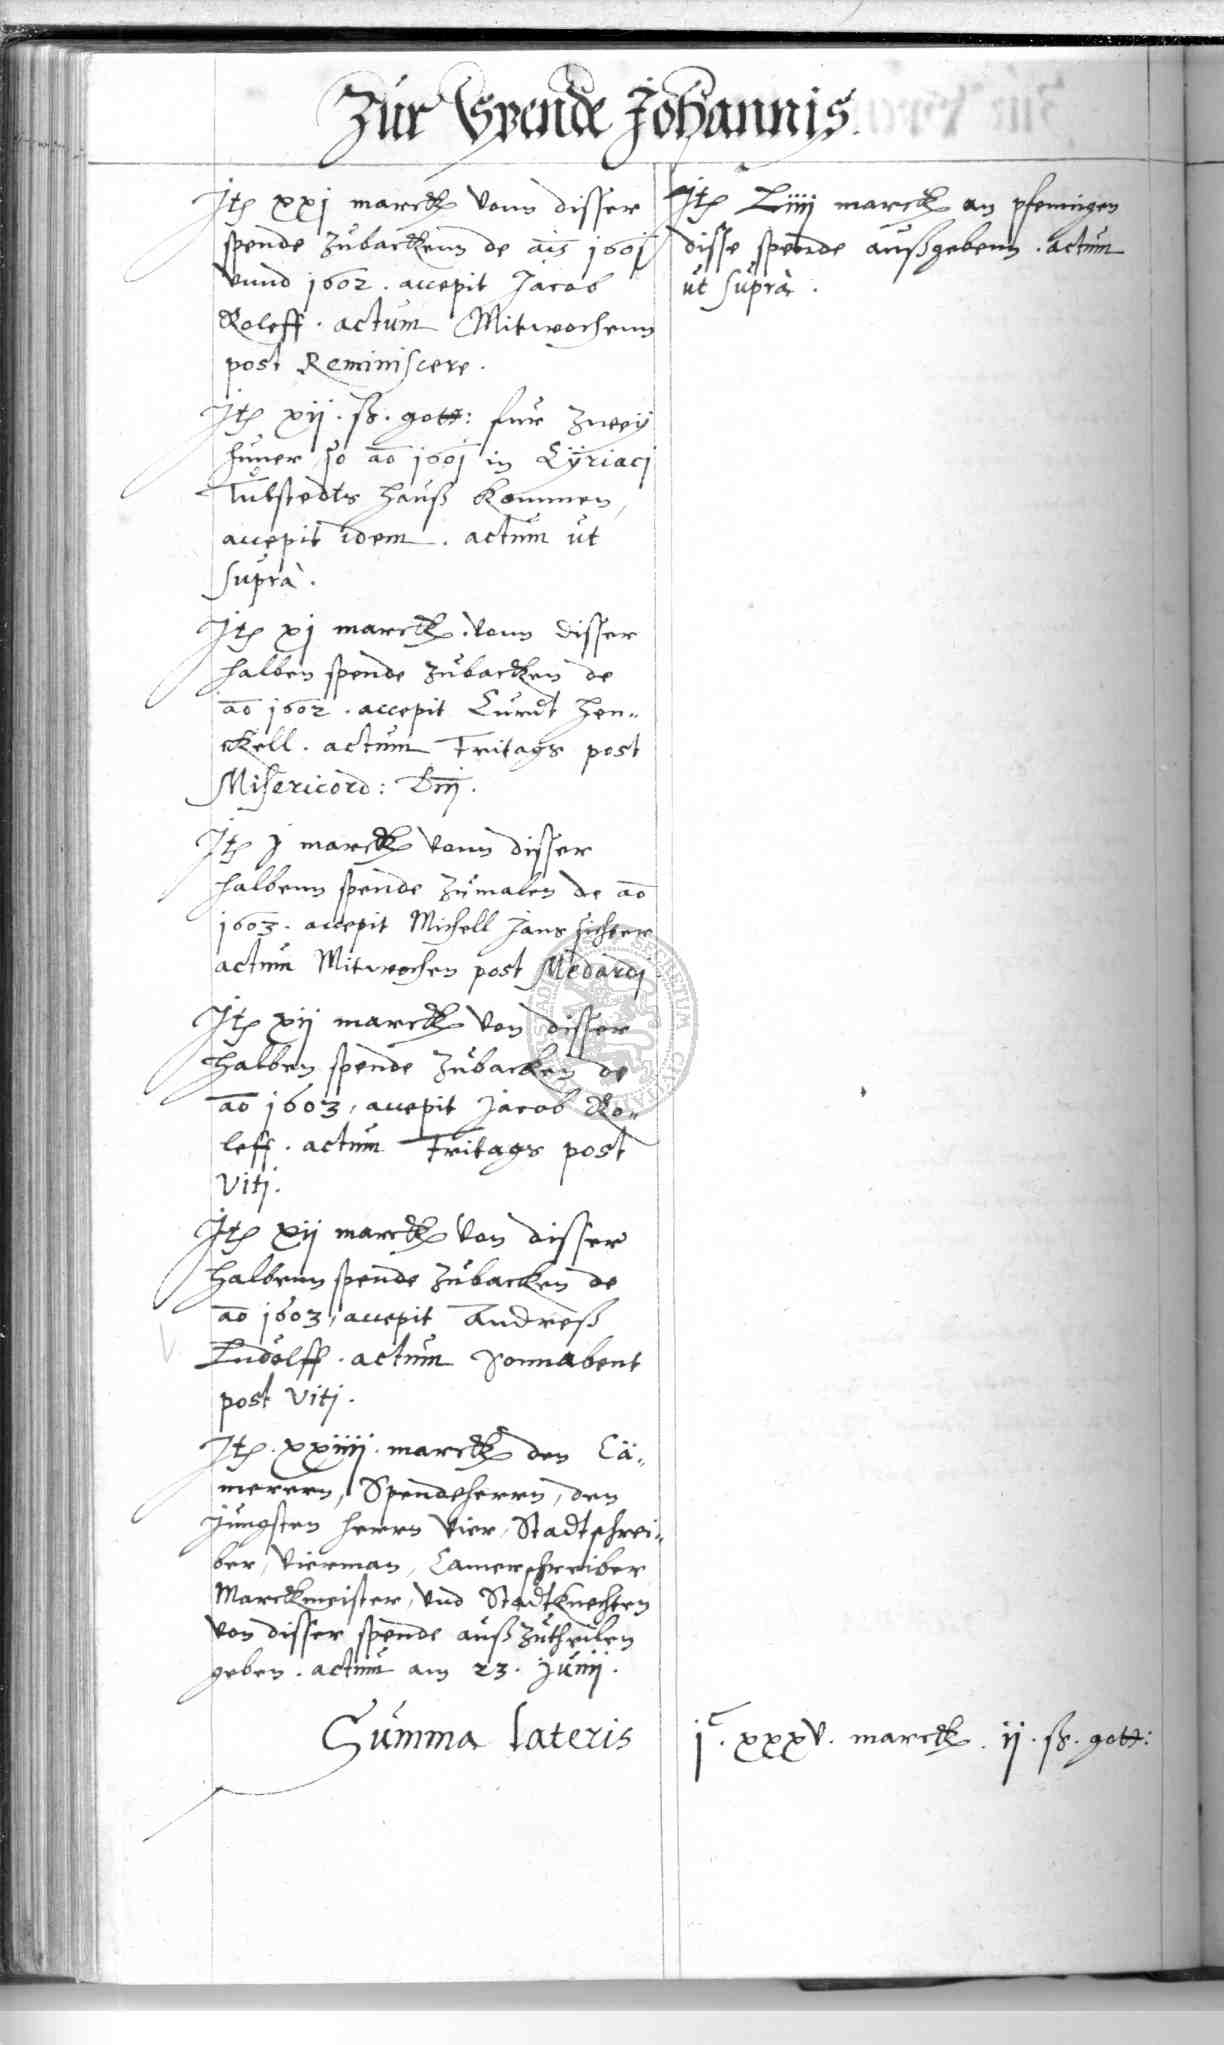 Zur Spende Johannis.
Jtem xxj marck vonn disser
spende zubackenn de anis 1601
vnnd 1602. accepit Jacob
Roleff. actum Mitwochenn
post Reminiscere.
Jtem xij. ß. gott: fur zweÿ
huner so ao 1601 in Cÿriacj
Tubstedts hauß kommen,
accepit idem. actum ut
suprà.
Jtem xj marck. vonn disser
halben spende zubacken de
ao 1602. accepit Curdt Hen„
ckell. actum Fritags post
Misericord: Dnj.
Jtem j marck vonn disser
halbenn spende zumalen de ao
1603. accepit Michell Jans
actum Mitwochen post Medardj
Jtem xij marck von disser
halben spende zubacken de
ao 1603, accepit Jacob Ro„
leff. actum Fritags post
Vitj.
Jtem xij marck von disser
halbenn spende zubacken de
ao 1603, accepit Andreß
Ludolff. actum Sonnabent
post Vitj.
Jtem. xxiiij. marck den Cä„
merern, Spendeherrn, den
jungsten herrn Vier, Stadtschrei„
ber, Vierman, Camerschreiber
Marckmeister, vnd Stadtknechten
von disser spende auß zutheilen
geben. actum am 23. Junij.
Jtem Liiij marck an pfenningen
disse spende außgebenn. actum
ut suprà.
Summa lateris jc. xxxv. marck. ij. ß. gott: